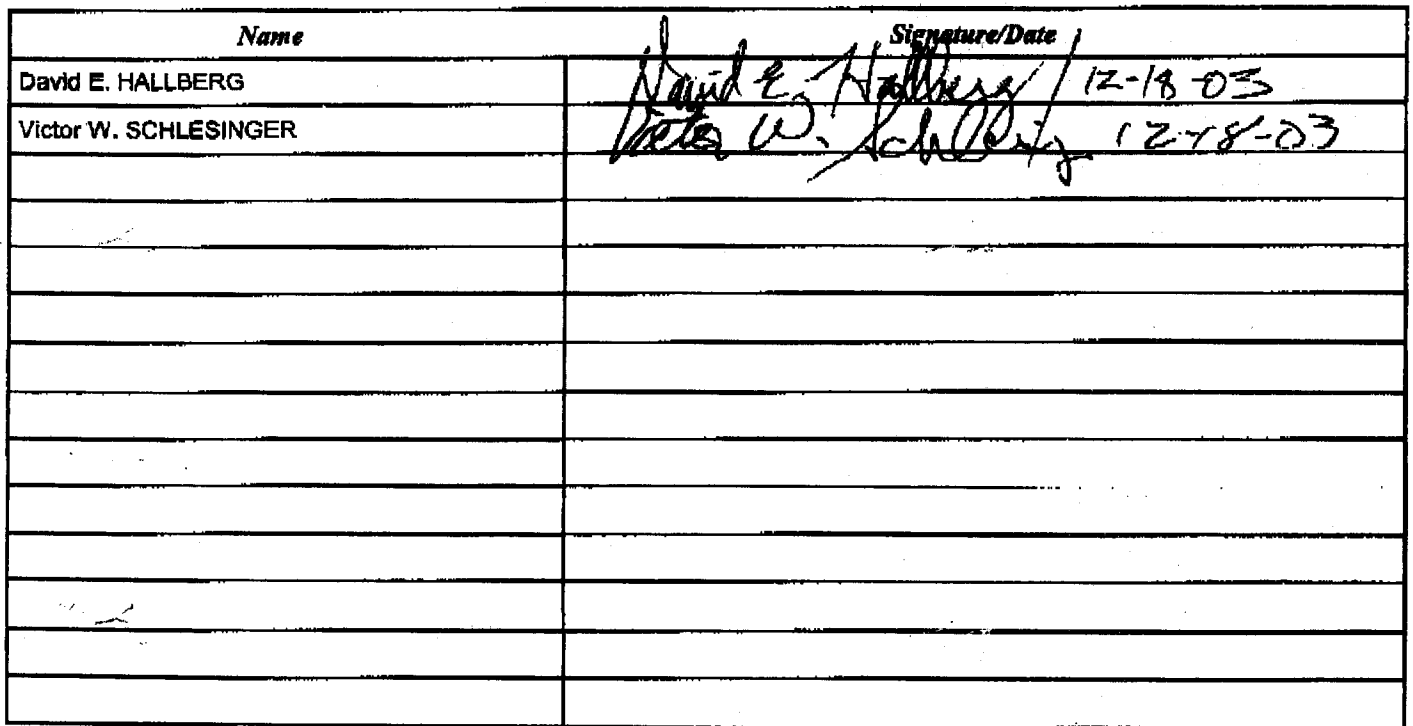 Name Signature/Date
David E. HALLBERG David E. Hallberg / 12-18-03
Victor W. SCHLESINGER Victor W. Schlesinger 12-18-03